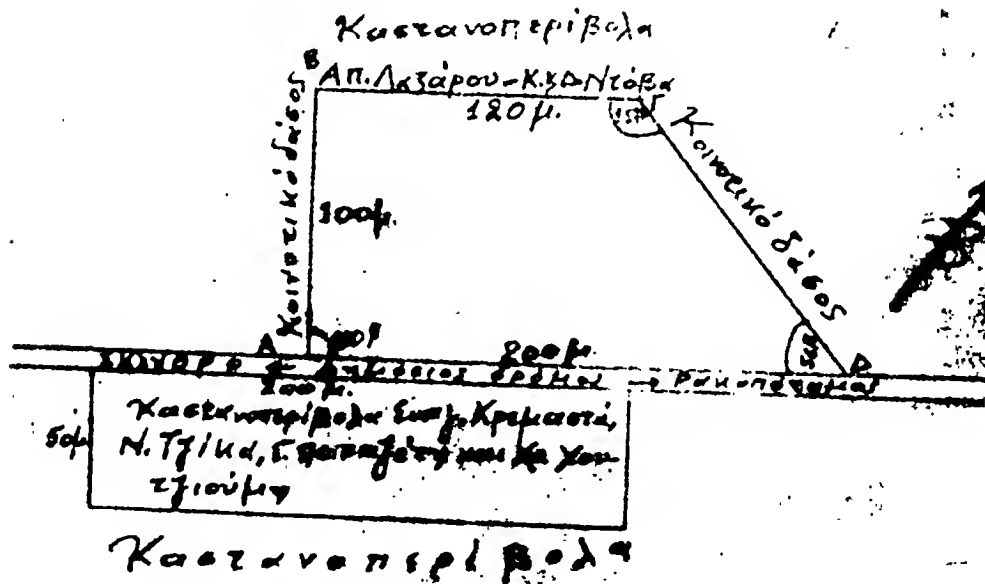 Καστανοπερίβολα
Β
Απ. Λαζάρου - Κ. χ Δ Ντόβα
120 μ.
Κοινοτικό δάσος
Κοινοτικό δάσος
100μ.
Α
200μ.
D
200 μ.
Δημόσιος δρόμος
Ρακοπόταμος
50μ
Καστανοπερίβολα Ευαγ. Κρεμαστά,
Ν. Τζίκα, Γ. και Χα Χον-
τζιούμη
Καστανοπερίβολα